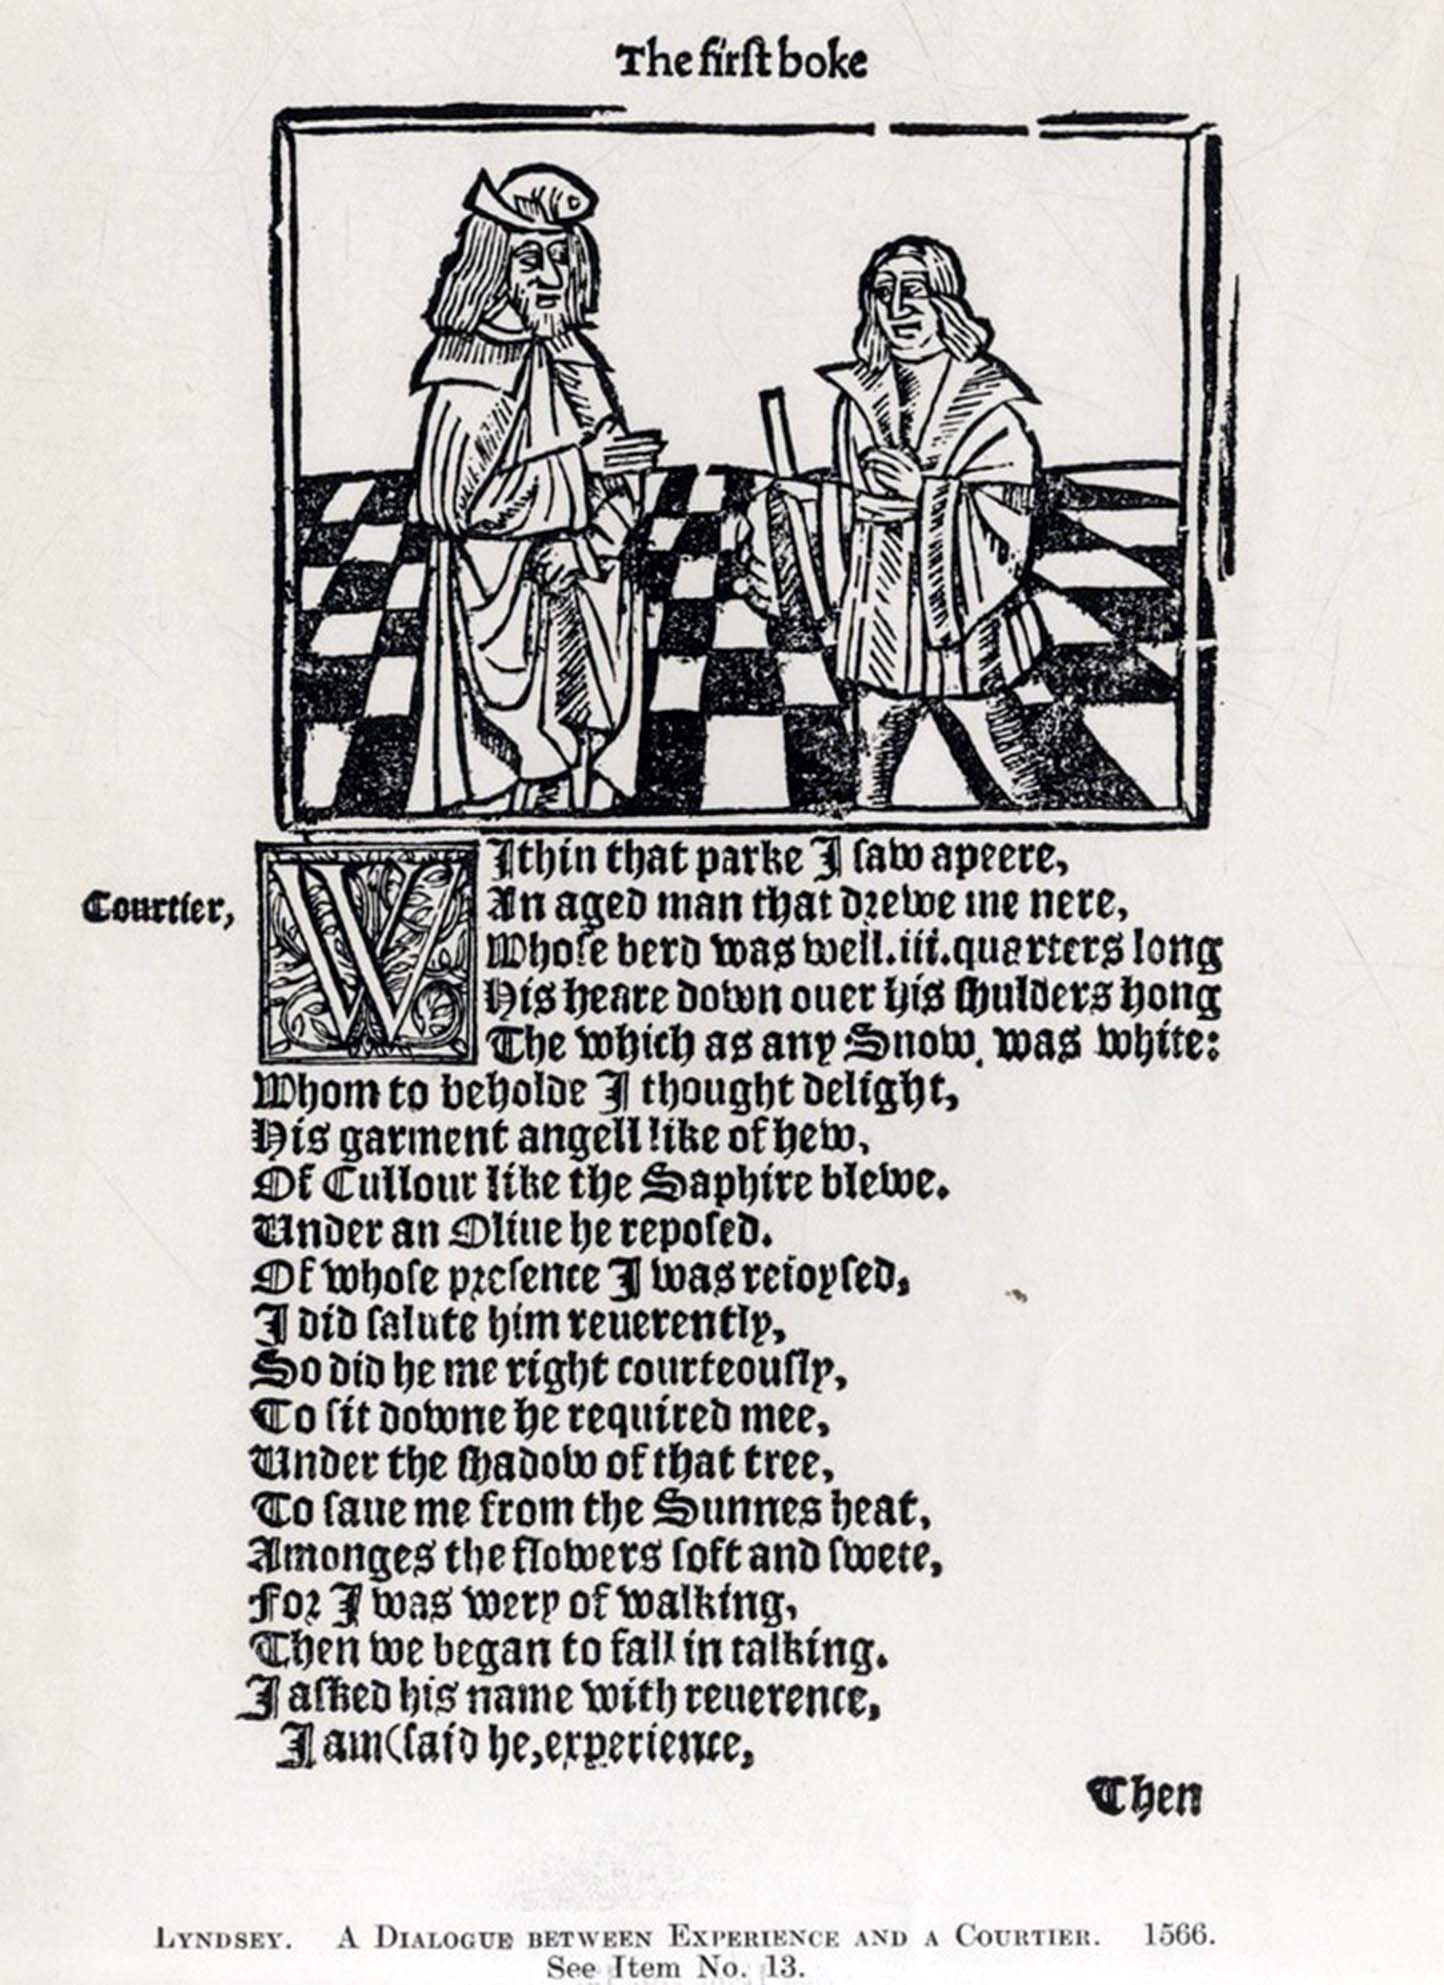 The first boke
Courtier,
WIthin that parke I saw apeere,
An aged man that drewe me nere,
Whose berd was well.iii.quarters long
His heare down ouer his shulders hong
The which as any Snow, was white:
Whom to beholde I thought delight,
His garment angell like of hew,
Of Cullour like the Saphire blewe.
Under an Oliue he reposed.
Of whose presence I was reioysed,
I did salute him reuerently,
So did he me right courteously,
To sit downe he required mee,
Under the shadow of that tree,
To saue me from the Sunnes heat,
Amonges the flowers soft and swete,
For I was wery of walking,
Then we began to fall in talking.
I asked his name with reuerence,
I am (said he, experience,
Then
LYNDSEY. A DIALOGUE BETWEEN EXPERIENCE AND A COURTIER. 1566.
See Item No. 13.